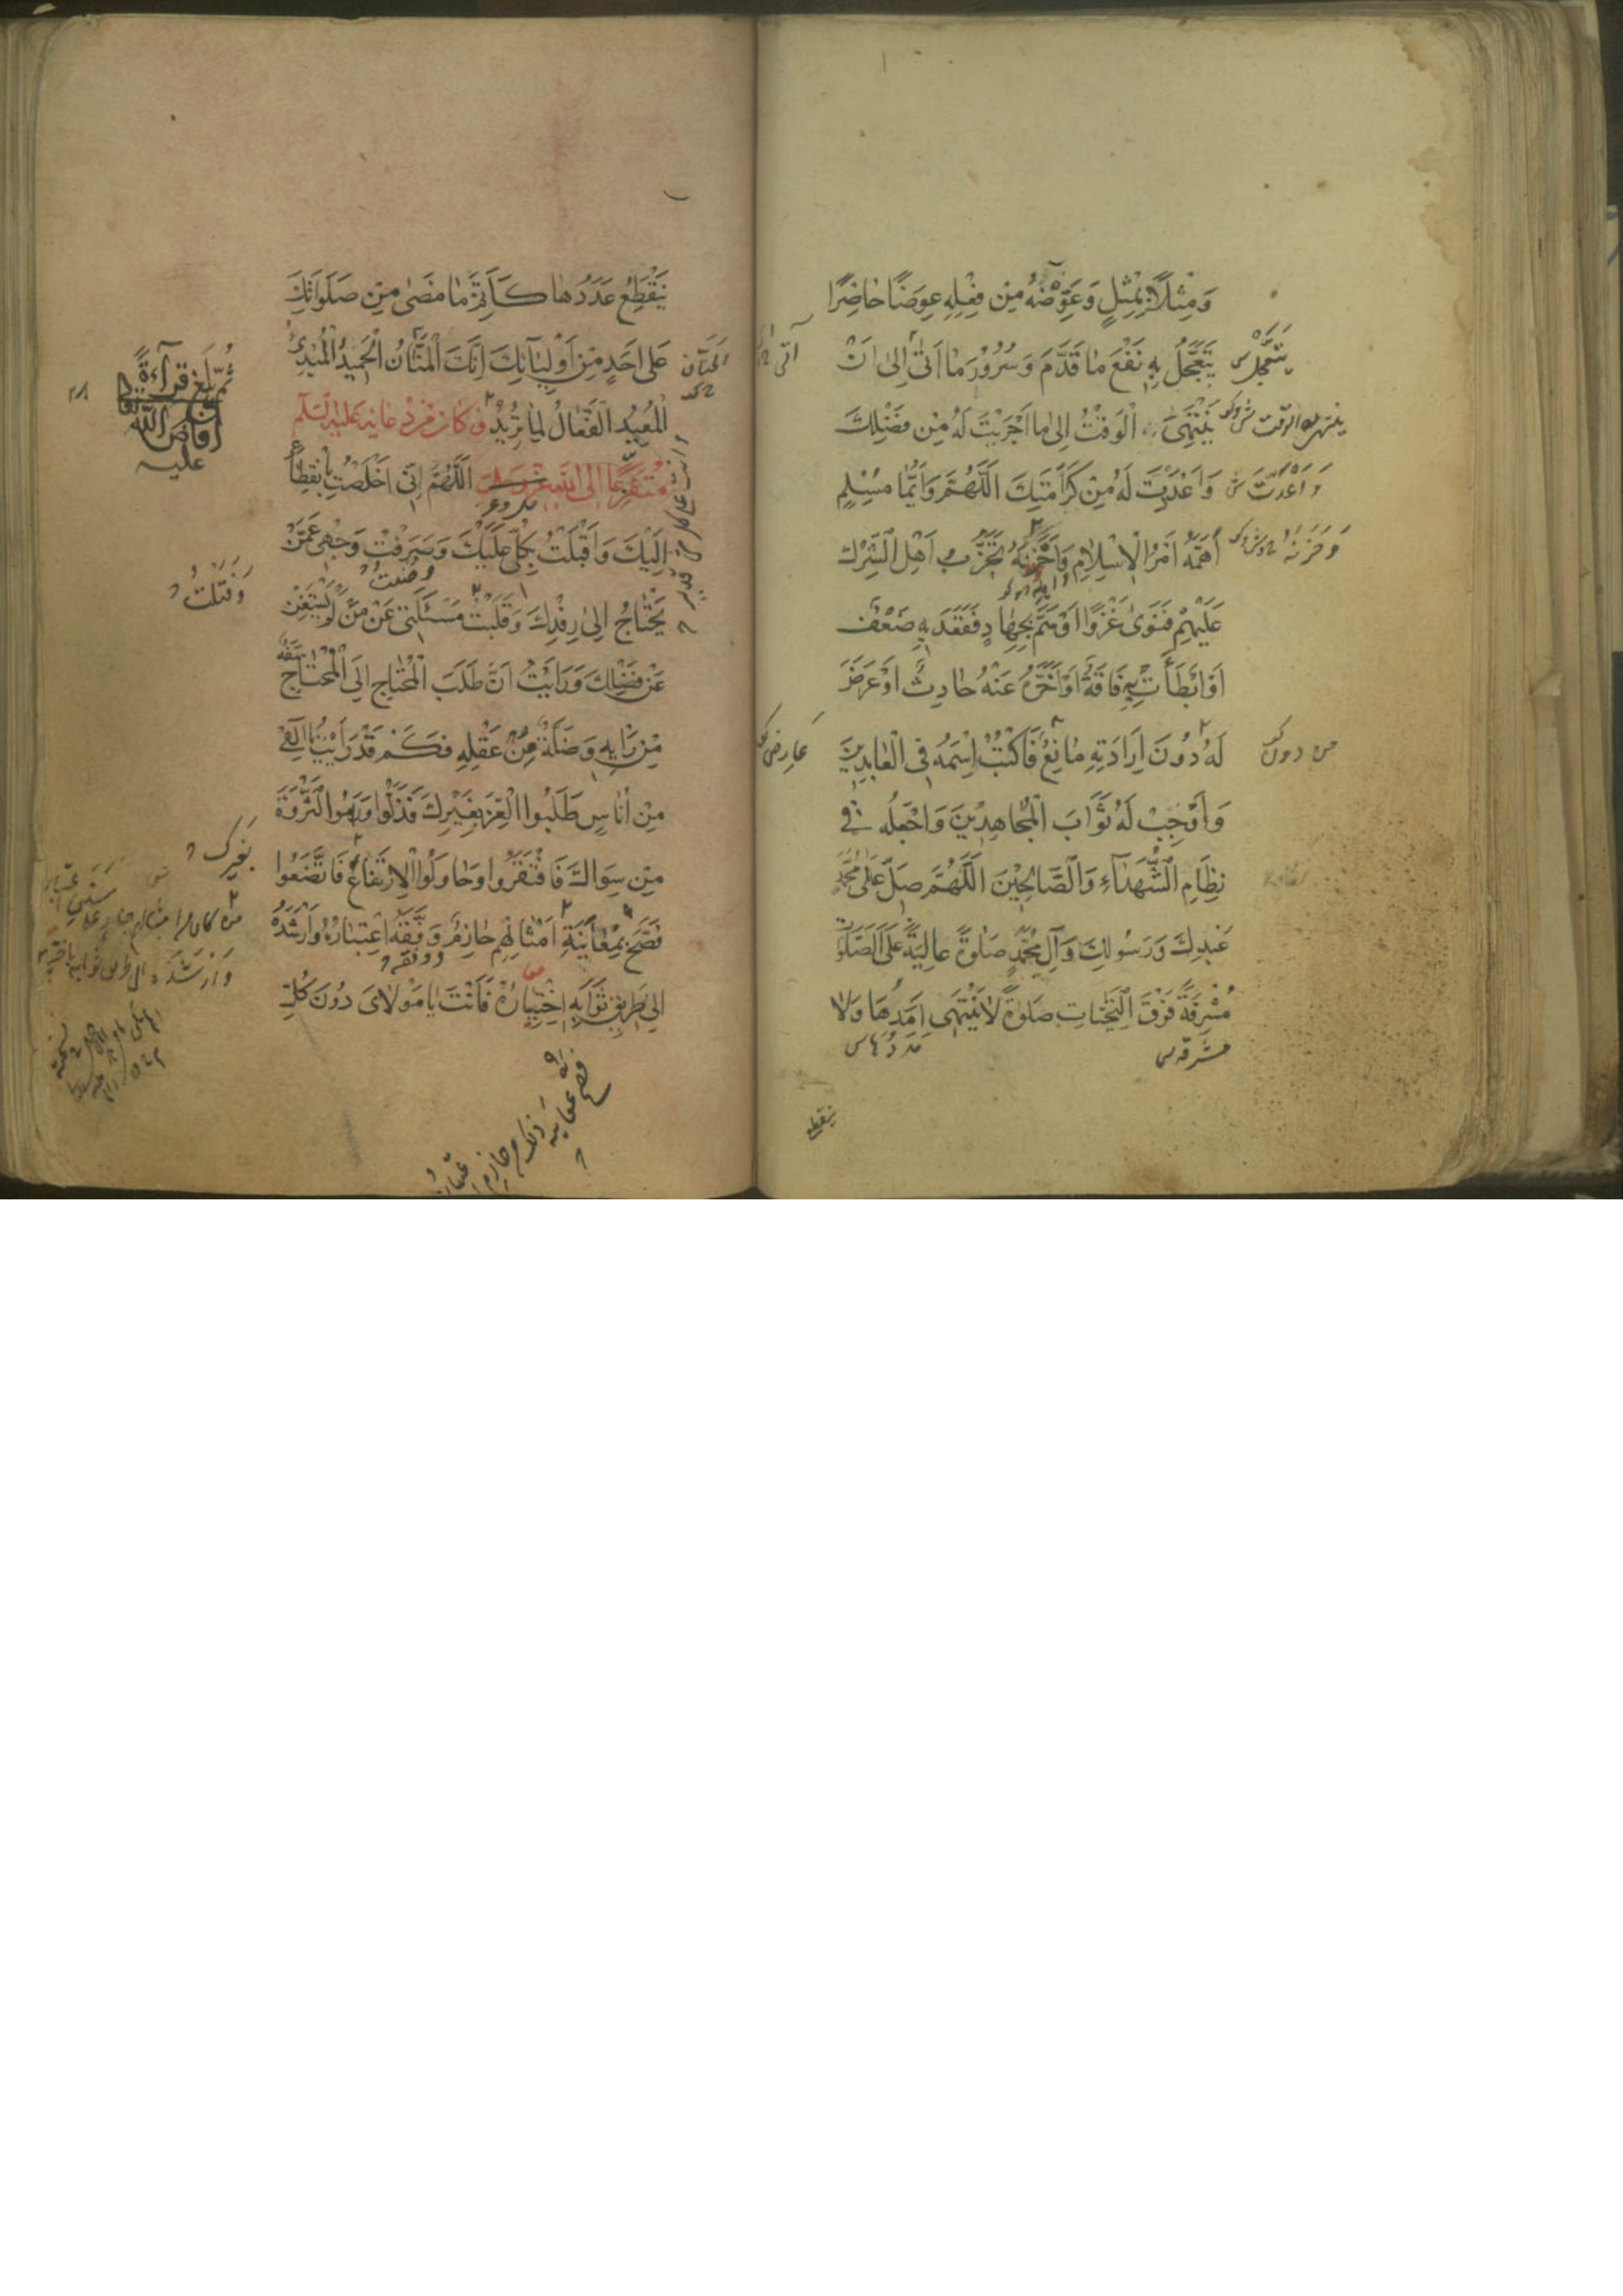 وَمِثْلًا بِمِثْلٍ وَعَوِّضْهُ مِنْ فِعْلِهِ عِوَضًا حَاضِرًا
يَتَعَجَّلُ بِهِ نَفْعَ مَا قَدَّمَ وَسُرُورَ مَا أَتَى إِلَى أَنْ
يَنْتَهِيَ بِهِ الْوَقْتُ إِلَى مَا أَجْرَيْتَ لَهُ مِنْ فَضْلِكَ
وَأَعْدَدْتَ لَهُ مِنْ كَرَامَتِكَ اللَّهُمَّ وَأَيُّمَا مُسْلِمٍ
أَهَمَّهُ أَمْرُ الْإِسْلَامِ وَأَحْزَنَهُ تَحَزُّبُ أَهْلِ الشِّرْكِ
عَلَيْهِمْ فَنَوَى غَزْوًا أَوْ هَمَّ بِجِهَادٍ فَقَعَدَ بِهِ ضَعْفٌ
أَوْ أَبْطَأَتْ بِهِ فَاقَةٌ أَوْ أَخَّرَهُ عَنْهُ حَادِثٌ أَوْ عَرَضَ
لَهُ دُونَ إِرَادَتِهِ مَانِعٌ فَاكْتُبْ اسْمَهُ فِي الْعَابِدِينَ
وَأَوْجِبْ لَهُ ثَوَابَ الْمُجَاهِدِينَ وَاجْعَلْهُ فِي
نِظَامِ الشُّهَدَاءِ وَالصَّالِحِينَ اللَّهُمَّ صَلِّ عَلَى مُحَمَّدٍ
عَبْدِكَ وَرَسُولِكَ وَآلِ مُحَمَّدٍ صَلَوةً عَالِيَةً عَلَى الصَّلَوَاتِ
مُشْرِفَةً فَوْقَ التَّحِيَّاتِ صَلَوةً لَا يَنْتَهِي أَمَدُهَا وَلَا
يَتَعَجَّلُ
وَأَعْدَدْتَ
وَحَزَنَهُ
من دون
عَارِض
مشرقة
يَنْقَطِعُ عَدَدُهَا كَأَتَمِّ مَا مَضَى مِنْ صَلَوَاتِكَ
عَلَى أَحَدٍ مِنْ أَوْلِيَائِكَ إِنَّكَ الْمَنَّانُ الْحَمِيدُ الْمُبْدِئُ
الْمُعِيدُ الْفَعَّالُ لِمَا تُرِيدُ وَكَانَ مِنْ دُعَائِهِ عَلَيْهِ السَّلَام
مُتَفَزِّعًا إِلَى اللَّهِ عَزَّ وَجَلَّ اللَّهُمَّ إِنِّي أَخْلَصْتُ بِانْقِطَاعِي
إِلَيْكَ وَأَقْبَلْتُ بِكُلِّي عَلَيْكَ وَصَرَفْتُ وَجْهِي عَمَّنْ
يَحْتَاجُ إِلَى رِفْدِكَ وَقَلَبْتُ مَسْئَلَتِي عَنْ مَنْ لَمْ يَسْتَغْنِ
عَنْ فَضْلِكَ وَرَأَيْتُ أَنَّ طَلَبَ الْمُحْتَاجِ إِلَى الْمُحْتَاجِ سَفَهٌ
مِنْ رَأْيِهِ وَضَلَّةٌ مِنْ عَقْلِهِ فَكَمْ قَدْ رَأَيْتُ يَا إِلَهِي
مِنْ أُنَاسٍ طَلَبُوا الْعِزَّ بِغَيْرِكَ فَذَلُّوا وَرَامُوا الثَّرْوَةَ
مِنْ سِوَاكَ فَافْتَقَرُوا وَحَاوَلُوا الِارْتِفَاعَ فَاتَّضَعُوا
فَصَحَّ بِمُعَايَنَةِ أَمْثَالِهِمْ حَازِمٌ وَفَّقَهُ اعْتِبَارُهُ وَأَرْشَدَهُ
إِلَى طَرِيقِ ثَوَابِهِ اخْتِيَارُهُ فَأَنْتَ يَا مَوْلَايَ دُونَ كُلِّ
ثُمَّ بَلَغَ قِرَآءَةً
أفاض الله
عليه
وَفَتَلْتُ
بغيرك